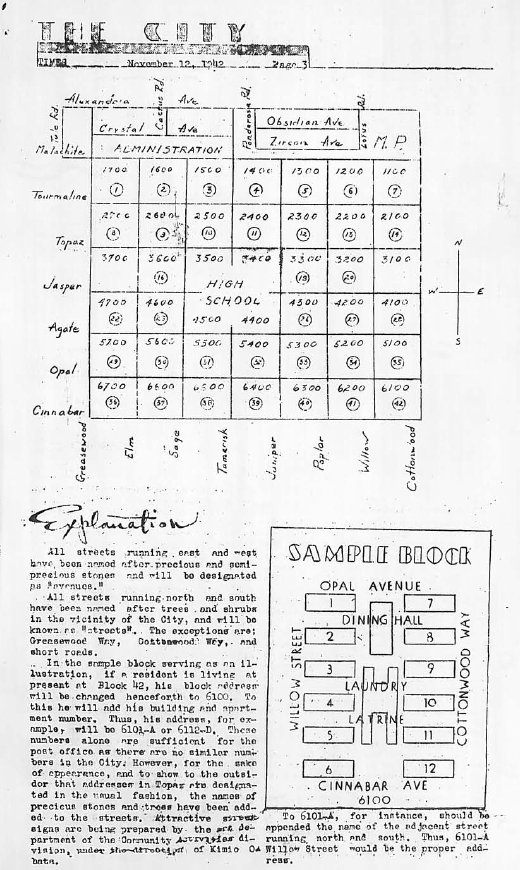 THE CITY
TIMES November 12, 1942 Page 3
Alexandria Ave
Tule Rd.
Cactus Rd
Ponderosa Rd.
Lotus Rd.
Crystal Ave
Obsidian Ave
Zircon Ave
M.P.
Malachite
ADMINISTRATION
1700 1600 1500 1400 1300 1200 1100
1 2 3 4 5 6 7
Tourmaline
2700 2600 2500 2400 2300 2200 2100
8 9 10 11 12 13 14
Topaz
3700 3600 3500 3400 3300 3200 3100
16 19 20
HIGH
SCHOOL
Jasper
4700 4600 4500 4400 4300 4200 4100
22 23 26 27 28
Agate
5700 5600 5500 5400 5300 5200 5100
29 30 31 32 33 34 35
Opal
6700 6600 6500 6400 6300 6200 6100
36 37 38 39 40 41 42
Cinnabar
Greasewood
Elm
Sage
Tamarisk
Juniper
Poplar
Willow
Cottonwood
N
W E
S
Explanation
All streets running east and west
have been named after precious and semi-
precious stones and will be designated
as "avenues."
All streets running north and south
have been named after trees and shrubs
in the vicinity of the City, and will be
known as "streets". The exceptions are:
Greasewood Way, Cottonwood Way, and
short roads.
In the sample block serving as an il-
lustration, if a resident is living at
present at Block 42, his block address
will be changed henceforth to 6100. To
this he will add his building and apart-
ment number. Thus, his address, for ex-
ample, will be 6101-A or 6112-D. These
numbers alone are sufficient for the
post office as there are no similar num-
bers in the City. However, for the sake
of appearance, and to show to the outsi-
der that addresses in Topaz are designa-
ted in the usual fashion, the names of
precious stones and trees have been add-
ed to the streets. Attractive street
signs are being prepared by the art de-
partment of the Community Activities di-
vision, under the direction of Kimio O
bata.
SAMPLE BLOCK
OPAL AVENUE
1 7
DINING HALL
2 8
3 9
LAUNDRY
4 10
LATRINE
5 11
6 12
WILLOW STREET
COTTONWOOD WAY
CINNABAR AVE
6100
To 6101-A, for instance, should be
appended the name of the adjacent street
running north and south. Thus, 6101-A
Willow Street would be the proper add-
ress.